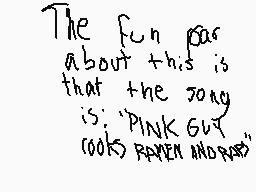 The fun par
about this is
that the song
is: "PINK GUY
COOKS RAMEN AND RAPS"